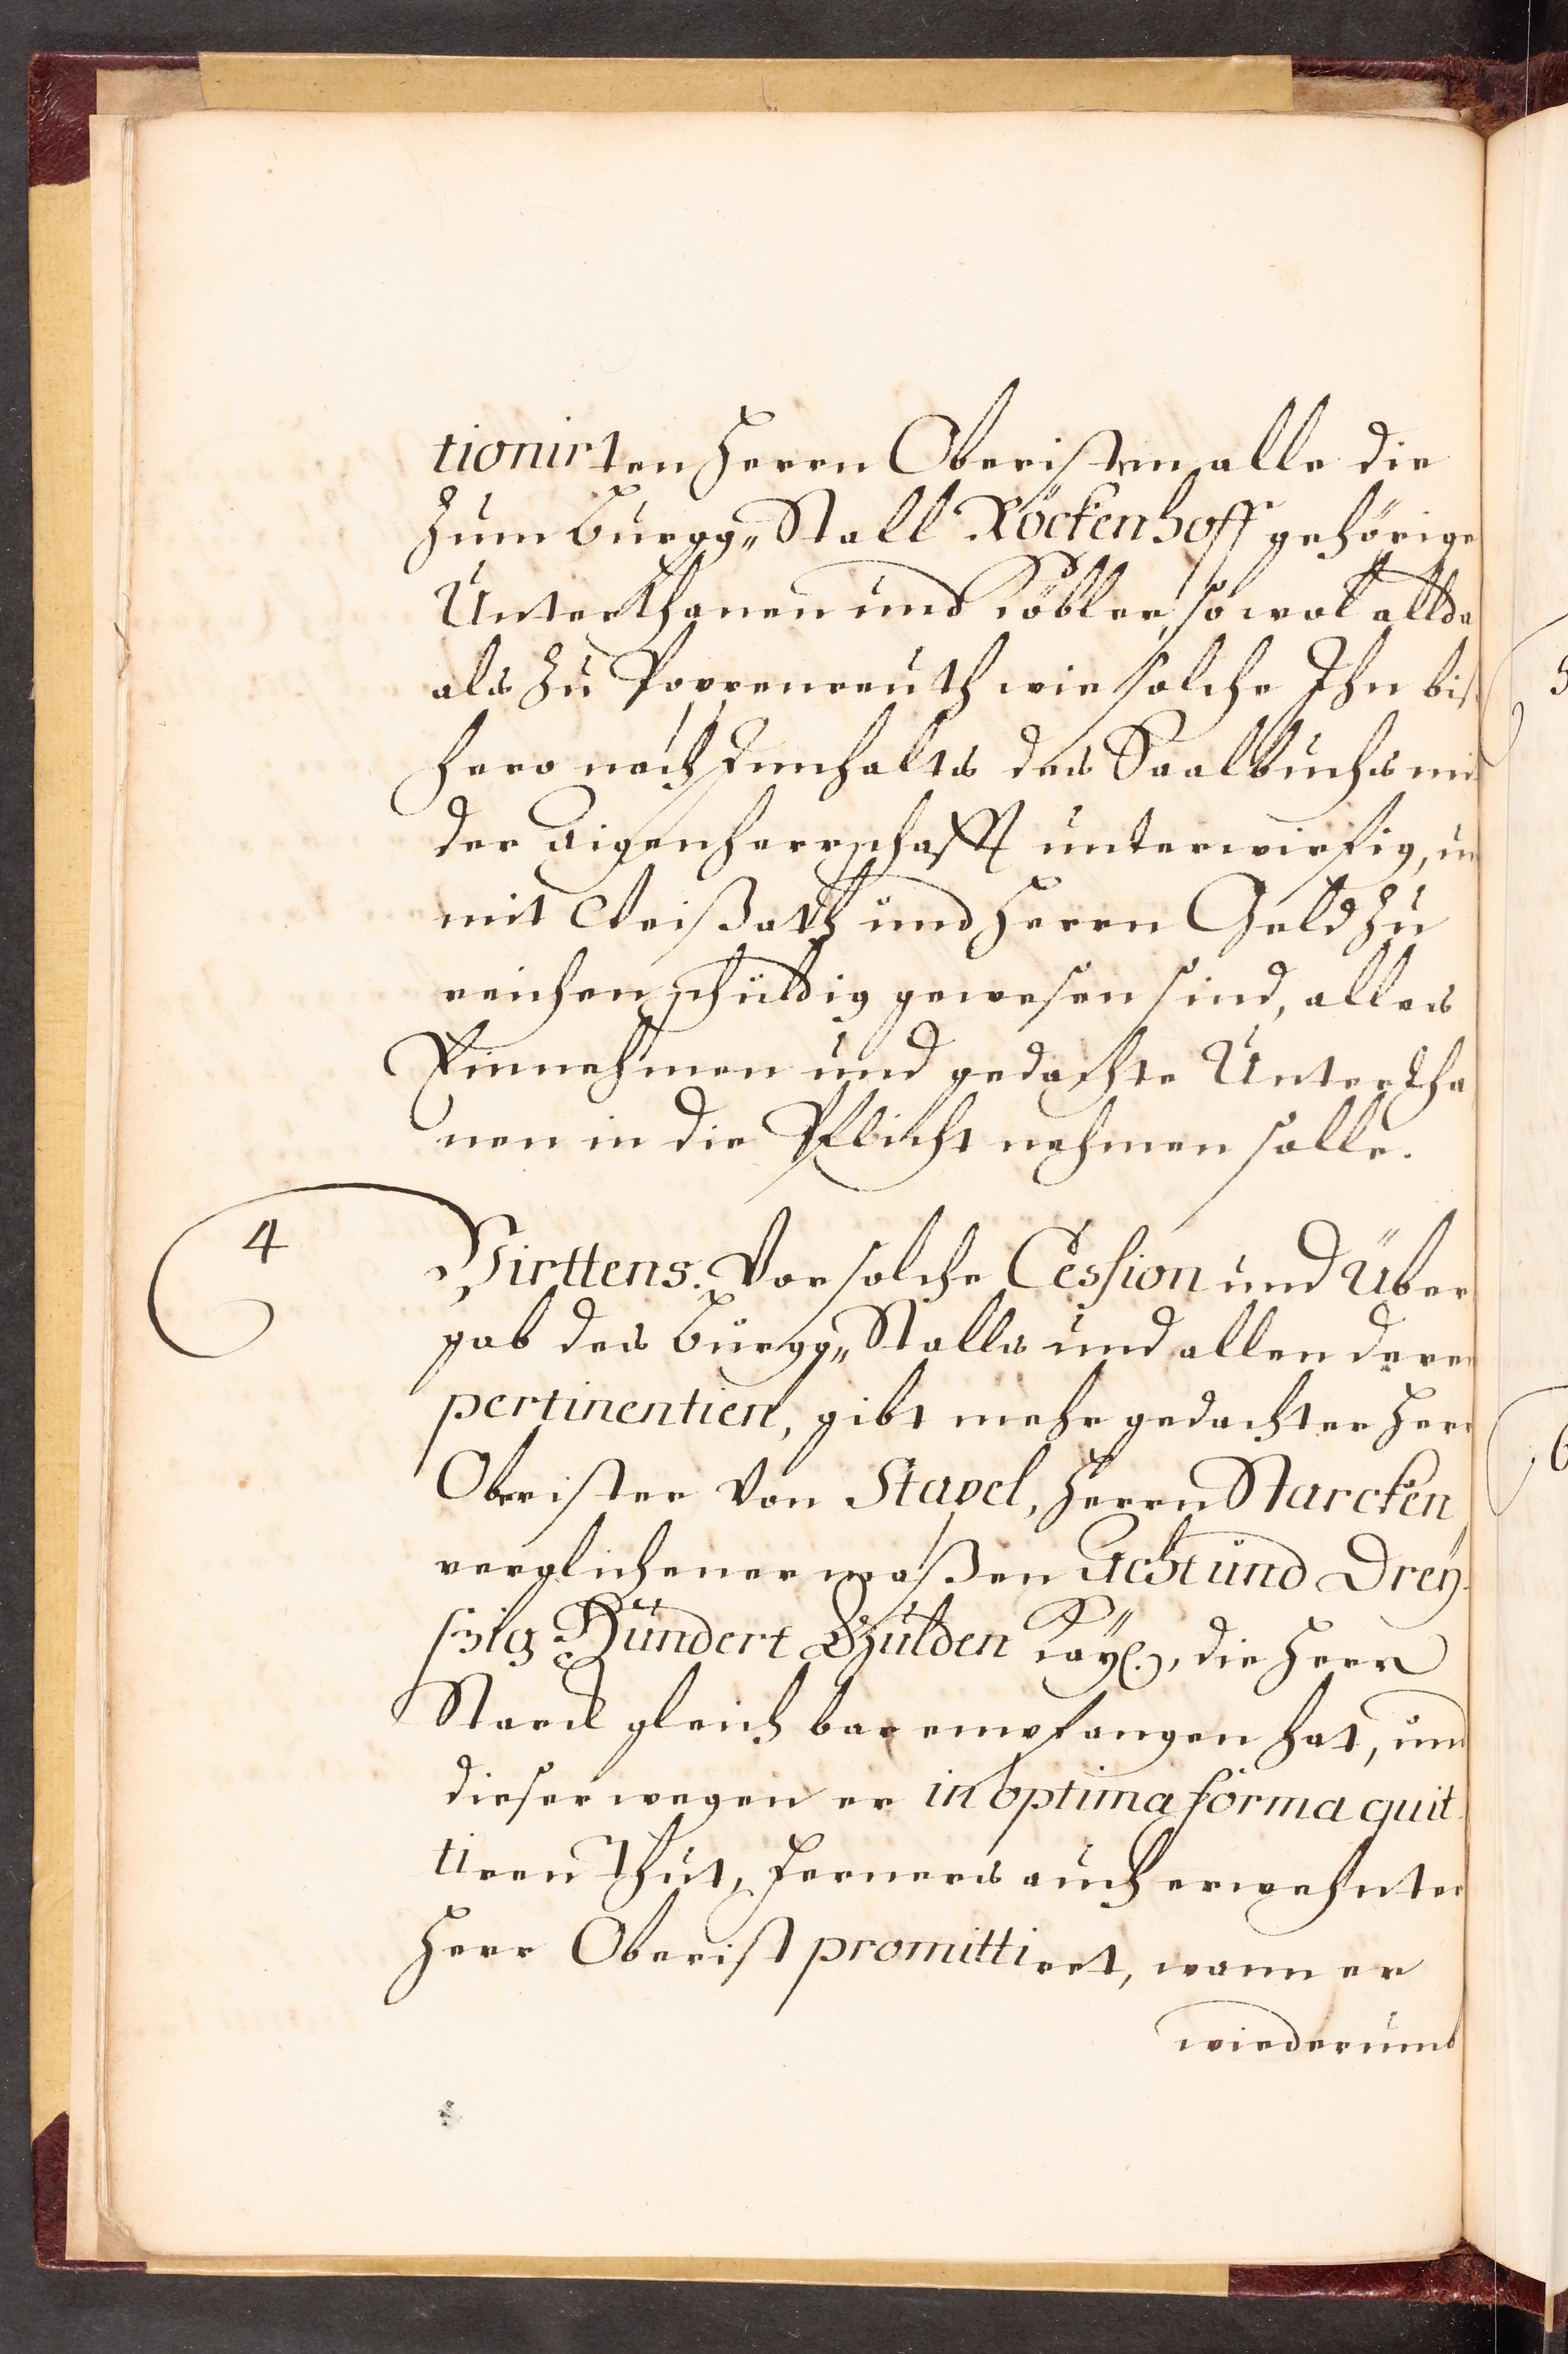 tionirten Herrn Oberisten, alle die
zum Burgg„Stall Röckenhoff gehörige
Unterthanen und Köbler, so wol allda
als zu Poppenreuth wie solche Ihn biß
hero nach Innhalts des Saalbuchs mit
der Eigenherrschafft unterwirfig, un
mit Weißath und Herrn Geld zu
reichen schuldig gewesen sind, alles
Einnehmen und gedachte Untertha
nen in die Pflicht nehmen solle.
4 Virttens. Vor solche Cession und Über
gab des Burgg„Stalls und allen deren
pertinentien, gibt mehr gedachter Herr
Oberister von Stavel, Herrn Starcken
verglichener maßen Acht und Drey
ßig Hundert Gulden Kayß., die Herr
Starck gleich bar empfangen hat, und
dieser wegen er in optima forma quit
tiren thut, Ferners auch erwehnter
Herr Oberist promittiret, wann er
wiederumb